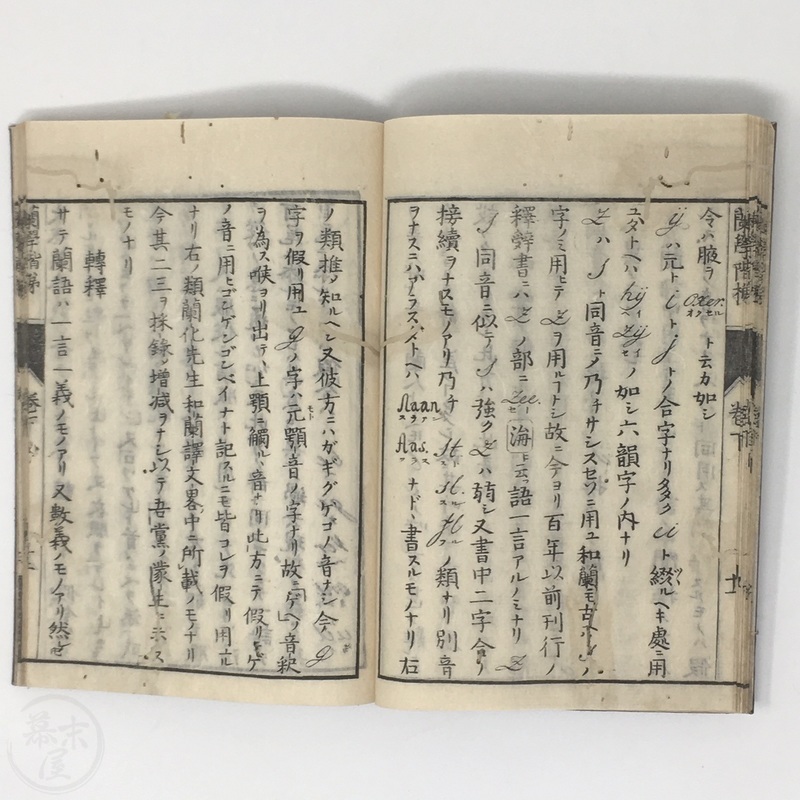 令ハ腋ヲ oxer オクセル ト云カ如シ
ÿ ハ元ト i ト j トノ合字ナリ多ク ii ト綴ルヘキ處ニ用
ユタトヘハ hÿ zÿ ノ如シ六韻字ノ内ナリ
Z ハ S ト同音ニノ乃チサシスセソニ用ユ和蘭モ古ハ
字ノミ用ヒテ Z ヲ用ルコトシ故ニ今ヨリ百年以前刊行ノ
釋辭書ニハ Z ノ部ニ Zee 海ト云フ語一言アルノミナリ Z
S 同音ニ似テ S ハ強ク Z ハ弱シ又書中二字合シ
接續ヲナスモノアリ乃チ ノ類ナリ別音
ヲナスニハアラスタトヘハ ナド書スルモノナリ右
蘭學階梯 卷下
ノ類推シ知ルヘシ又彼方ニハガギグゲゴノ音ナシ今 g
字ヲ假リ用ユ g ノ字ハ元顎音ノ字ナリ故ニゲヘノ音釈
ヲ為ス喉ヨリ出テ、上顎ニ觸ル、音ナリ此方ニテ假リニゲ
ノ音ニ用ヒゴンゲンゴンベイナト記スルニモ皆コレヲ假リ用ル
ナリ右ノ類蘭化先生和蘭譯文畧中ニ所載ノモノナリ
今其二三ヲ採錄シ増減ヲナシ以テ吾黨ノ蒙生ニ示ス
モノナリ
轉釋
サテ蘭語ハ一言一義ノモノアリ又數義ノモノアリ然レ
蘭學階梯 卷下
幕末屋